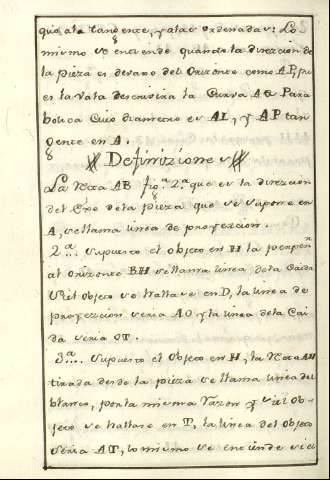 que a la tangente, y a las ordenadas: Lo
mismo se entiende quando la direzcion de
la pieza es devaxo del Orizonte como AP, pu
es la vala descrivira la Curva AQ Para
bolica Cuio diametro es AI, y AP tan
gente en A.
Definiziones
La Recta AB fig.ª 2.ª que es la direzcion
del Exe de la pieza que se supone en
A, se llama linea de proyeccion.
2.ª... supuesto el objeto en H la perpen.r
al orizonte BH se llama linea de la Caida
si el objeto se hallase en D, la linea de
proyeczion seria AO, y la linea de la Cai
da seria OT.
3.ª... supuesto el Objeto en H, la Recta AH
tirada desde la pieza se llama linea del
blanco, por la misma razon si el Ob-
jeto se hallare en T, la linea del Objeto
seria AT, lo mismo se entiende si el